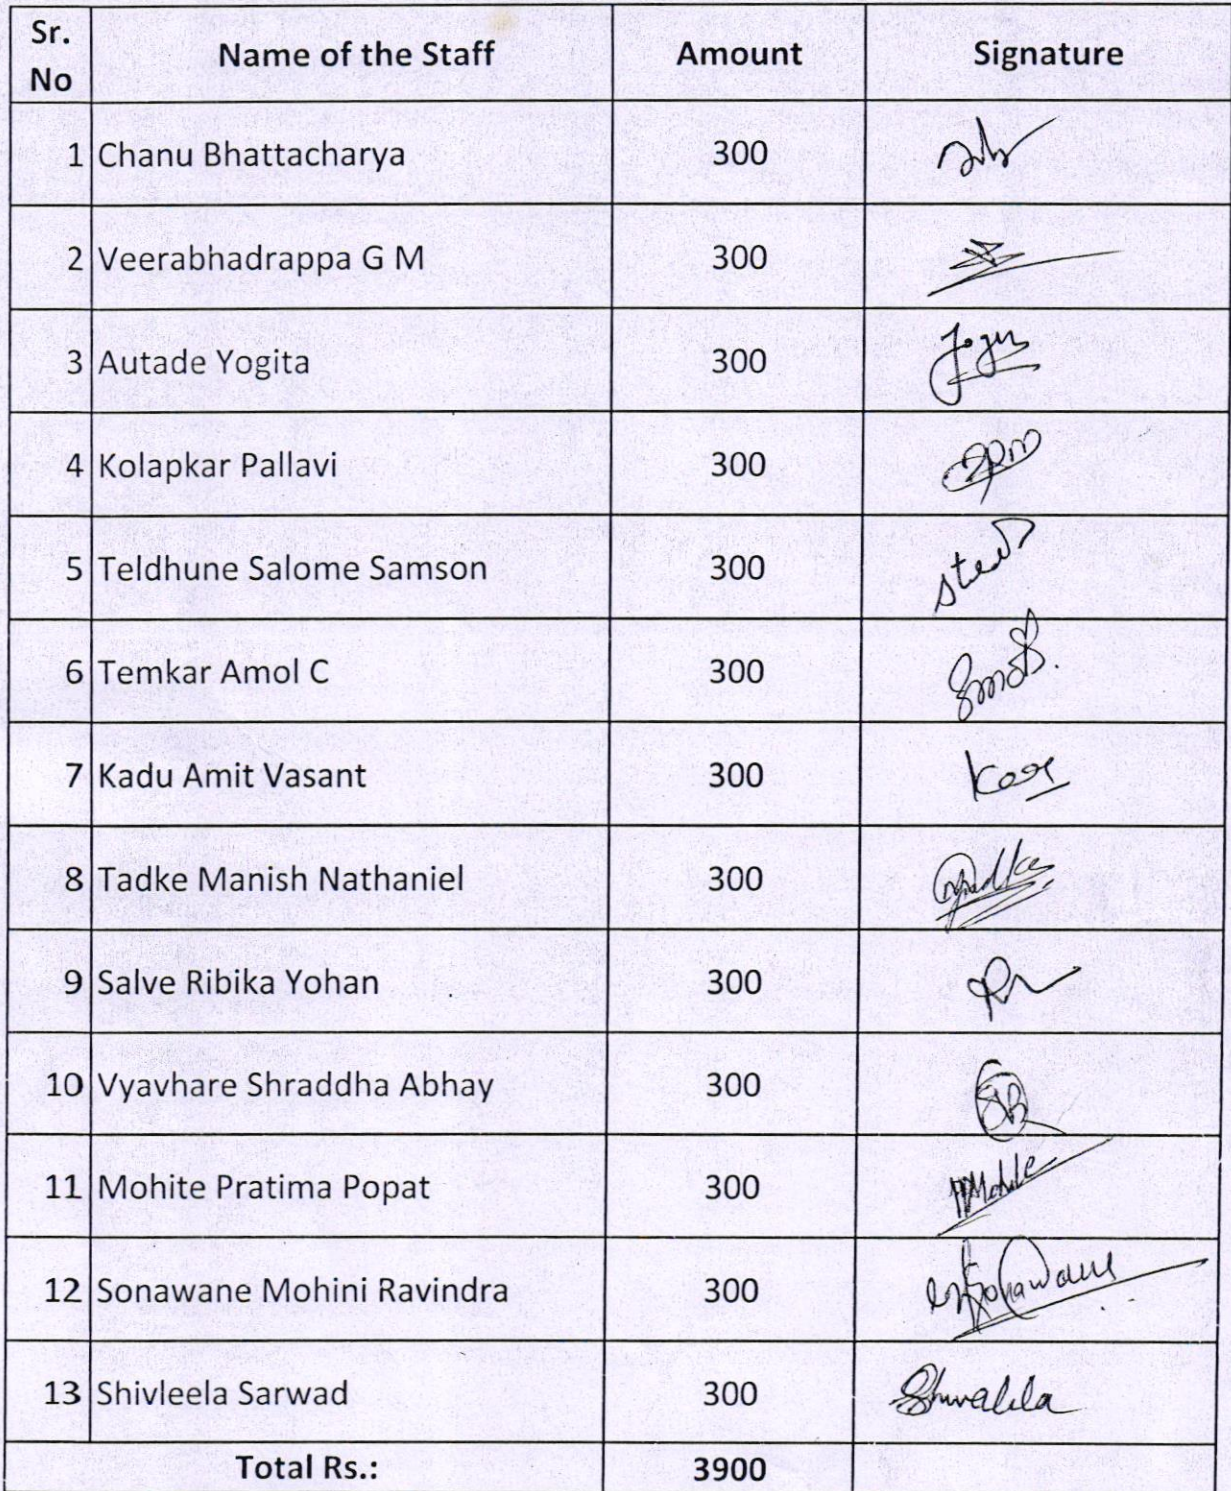 Sr. No Name of the Staff Amount Signature
1 Chanu Bhattacharya 300
2 Veerabhadrappa G M 300
3 Autade Yogita 300
4 Kolapkar Pallavi 300
5 Teldhune Salome Samson 300
6 Temkar Amol C 300
7 Kadu Amit Vasant 300
8 Tadke Manish Nathaniel 300
9 Salve Ribika Yohan 300
10 Vyavhare Shraddha Abhay 300
11 Mohite Pratima Popat 300
12 Sonawane Mohini Ravindra 300
13 Shivleela Sarwad 300
Total Rs.: 3900